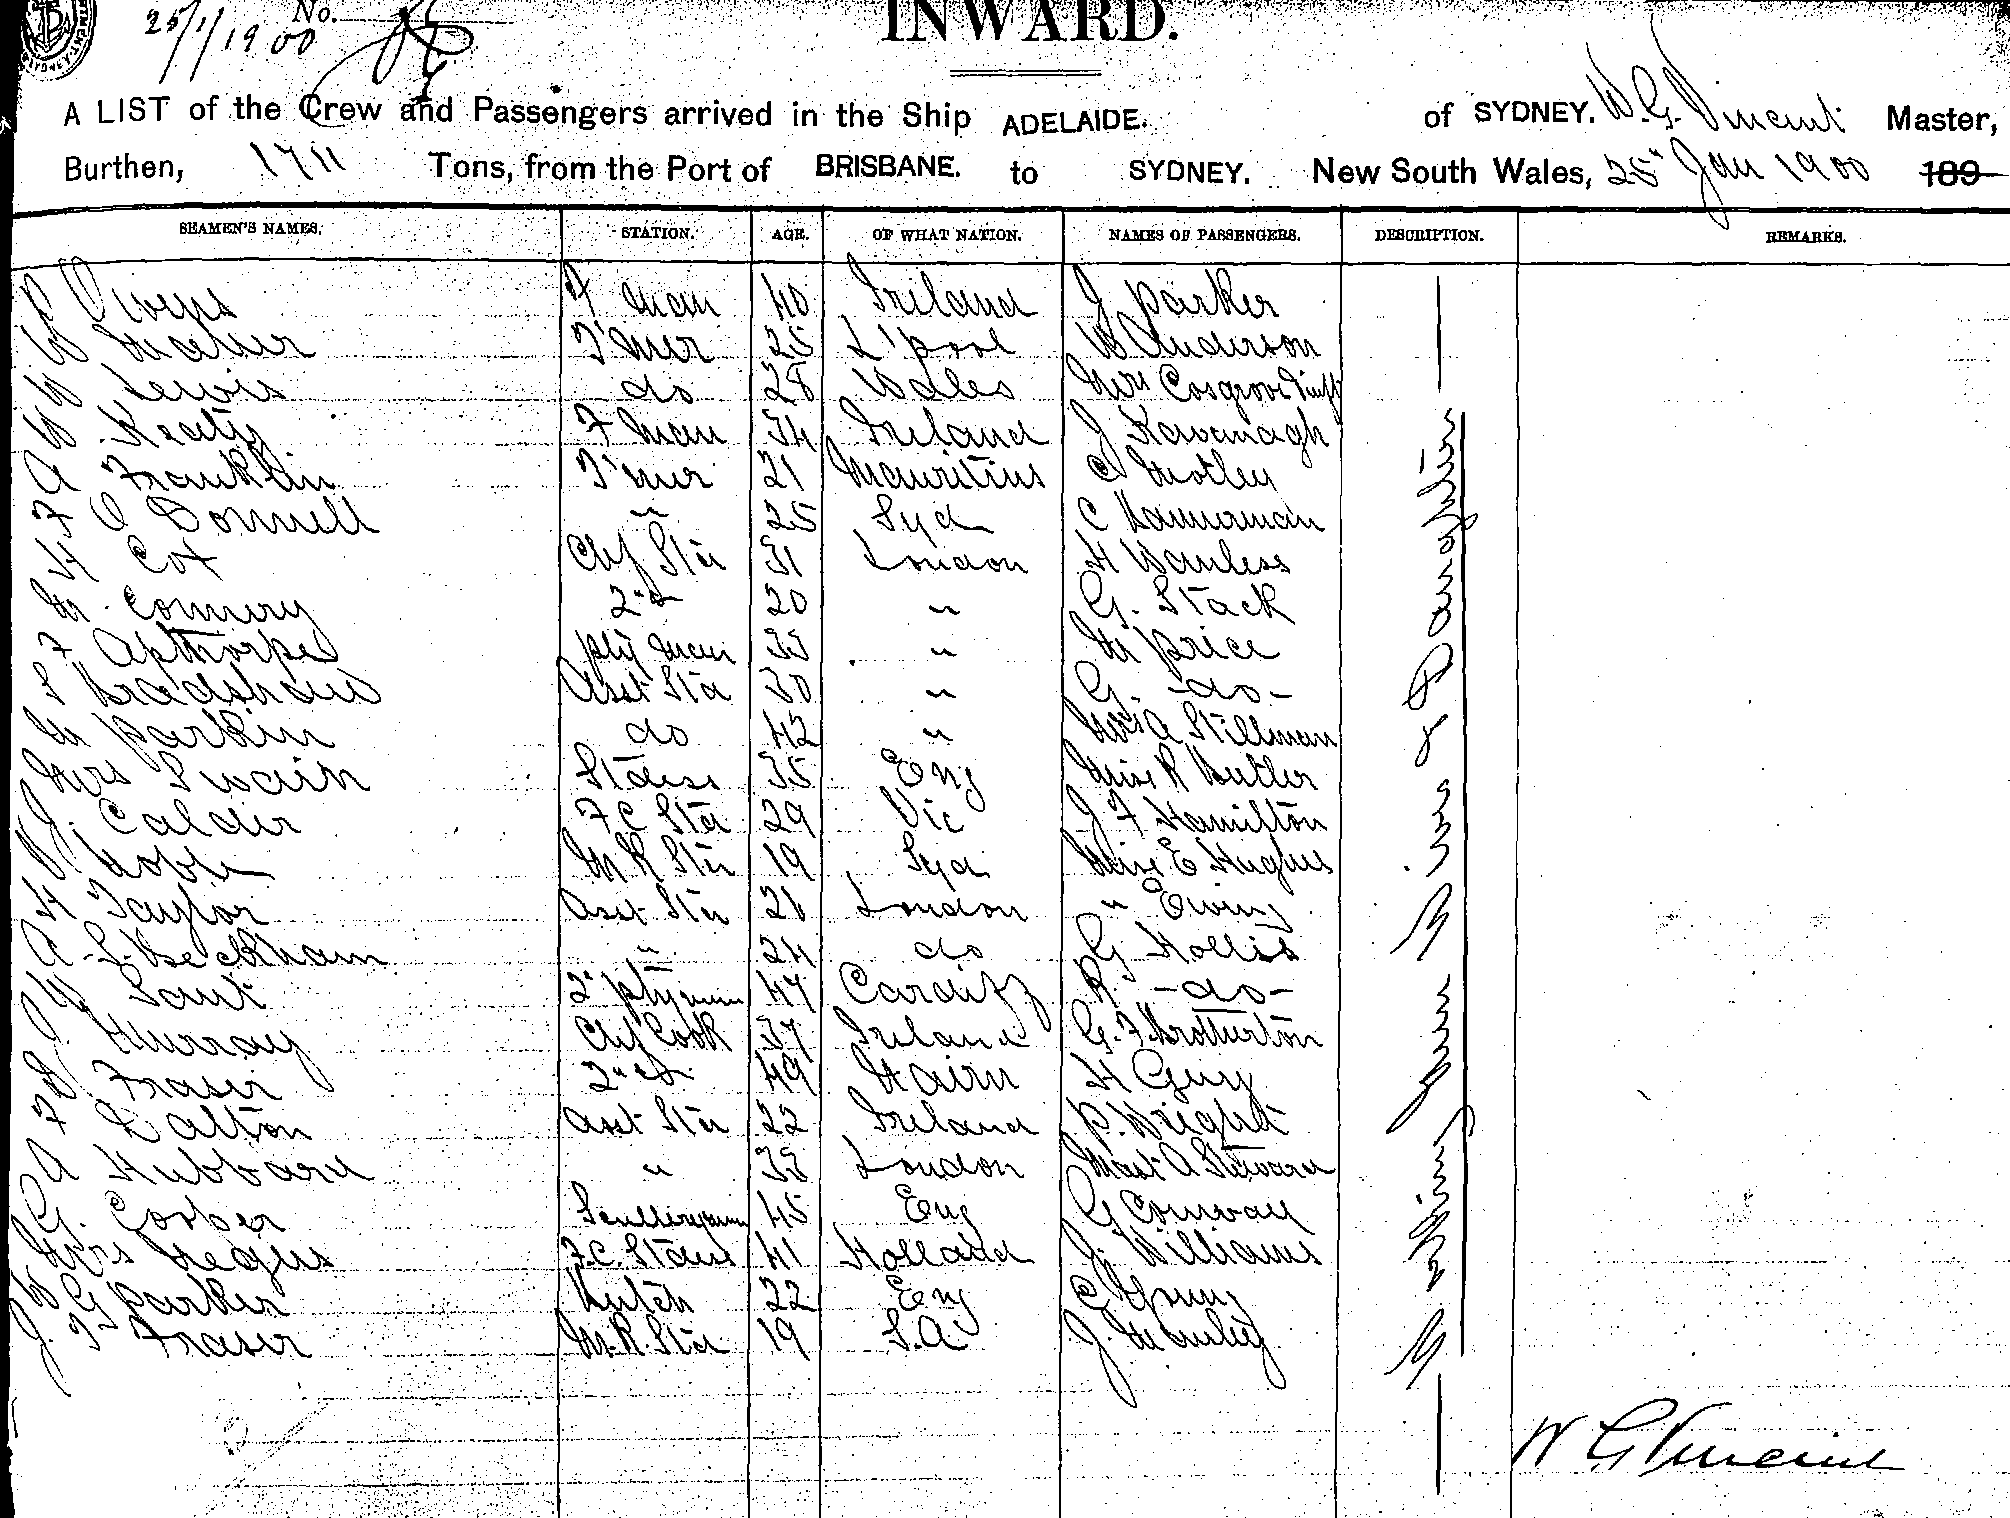 25/1/1900 No.
INWARD.
A LIST of the Crew and Passengers arrived in the Ship ADELAIDE. of SYDNEY. W. G. Vincent Master,
Burthen, 1711 Tons, from the Port of BRISBANE. to SYDNEY. New South Wales, 25" Jan 1900 189
SEAMEN'S NAMES. STATION. AGE. OF WHAT NATION. NAMES OF PASSENGERS. DESCRIPTION. REMARKS.
F man 40 Ireland J Parker
W T'mer 25 L'pool W Anderson
W Lewis do 28 Wales Mrs Cosgrove
W Keaty F man 34 Ireland J Kavanagh
A Franklin T'mer 21 Mauritius C Motley
F O Donnell " 25 Syd C Hannerman
H Cox Chf Std 31 London H Wanless
M Conviry 2nd 20 " G. Stack
F Apthorpe pty man 35 " M Price
S Bradshaw Asst Std 30 " G. -do-
M Parkin do 42 " Mrs A Stillman
Mrs Swain Stdess 35 Eng Miss R Butler
J. Calder F C Std 29 Vic J F Hamilton
Noble M R Std 19 Syd Miss E Hughes
H Taylor Asst Std 28 London " Ewing
A. S. Beckham " 24 do G Hollis
W Saut 2" ptyman 47 Cardiff R -do-
J Murray Chf Cook 37 Ireland G. F. Brotterton
D Fraser 2nd 49 Nairn H Guy
F Dalton Asst Std 22 Ireland P. Wright
A Hubbard " 38 London Mast A Steward
G. Cooper Sculleryman 45 Eng G Conway
Mrs Negus F.C. Stdess 41 Holland J. Williams
W G Parker 22 Eng C Young
J. T Fraser M.R. Std 19 S.A J. Manley
W G Vincent